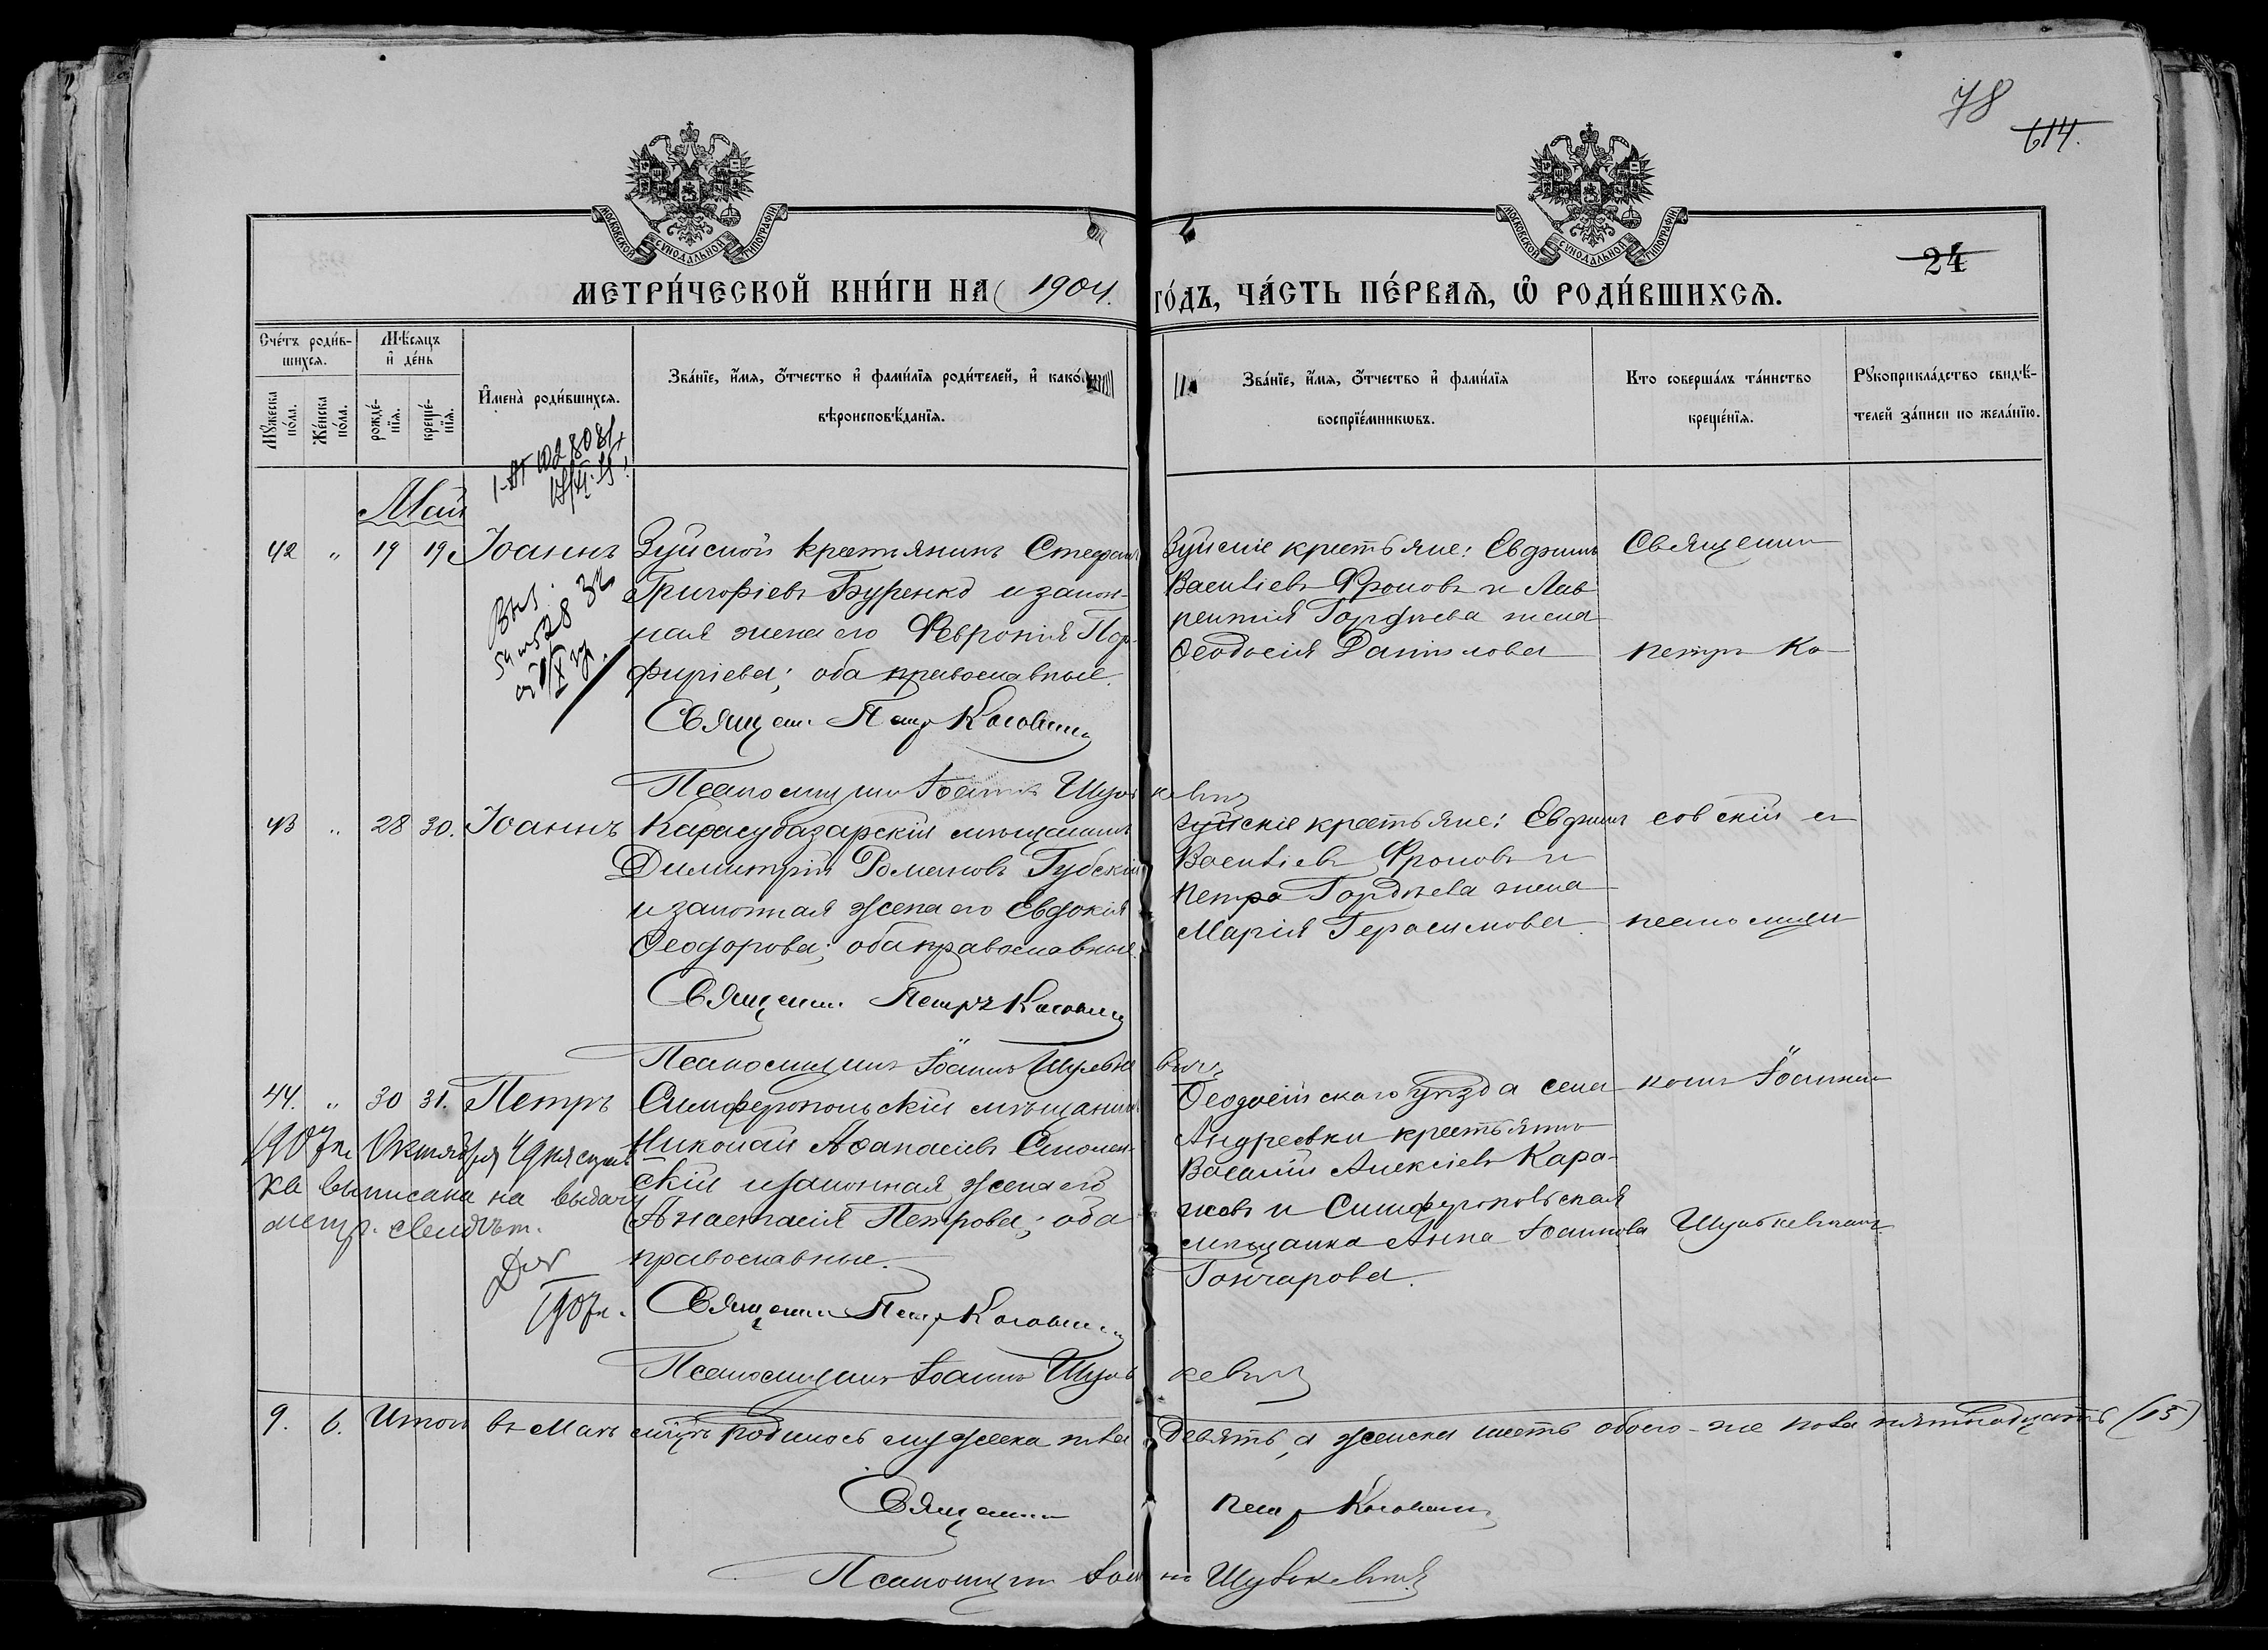 78
614.
МОСКОВСКОЙ СУНОДАЛЬНОЙ ТИПОГРАФІИ
МОСКОВСКОЙ СУНОДАЛЬНОЙ ТИПОГРАФІИ
24
МЕТРИ́ЧЕСКОЙ КНИ́ГИ НА 1904. ГО́ДЪ, ЧА́СТЬ ПЕ́РВАЯ, Ѡ҆ РОДИ́ВШИХСЯ.
Сче́тъ роди́в-
шихся.
Мѣ́сяцъ
и҆ де́нь
Мꙋ́жеска
по́ла.
Же́нска
по́ла.
рожде́-
нїя.
креще́-
нїя.
И҆мена̀ роди́вшихся.
Зва́нїе, и҆́мя, ѻ҆́тчество и҆ фами́лїя роди́телей, и҆ како́
вѣроисповѣ́данїя.
Зва́нїе, и҆́мя, ѻ҆́тчество и҆ фами́лїя
воспрїе́мникѡвъ.
Кто соверша́лъ та́инство
креще́нїя.
Рꙋкоприкла́дство свидѣ́-
телей за́писи по жела́нїю.
Май
42 " 19 19 Іоаннъ
Зуйской крестьянинъ Стефанъ
Григоріевъ Буренко и закон-
ная жена его Феѵронія Пор-
фиріева; оба православные.
Священ. Петръ Косовск
Псаломщикъ Іоаннъ Шуль кевич
Зуйскіе крестьяне: Евфимъ
Васильевъ Фроловъ и Лав
рентія Гордѣева жена
Ѳеодосія Данилова
Священник
Петръ Ко-
43 " 28 30. Іоаннъ
Карасубазарскій мѣщанинъ
Димитрій Романовъ Губскій
и законная жена его Евдокія
Ѳеодорова; оба православные.
Священ. Петръ Косовск
Псаломщикъ Іоаннъ Шульке вич
Зуйскіе крестьяне: Евфимъ
Васильевъ Фроловъ и
Петра Гордѣева жена
Марія Герасимова.
совскій съ
псаломщи
44. " 30 31. Петръ
1907 г. Октября 4 дня справ
ка выписана на выдачу
метр. свидѣт.
1907 г.
Симферопольскій мѣщанинъ
Николай Аѳанасіевъ Смолен-
скій и законная жена его
Анастасія Петрова; оба
православные.
Священник Петръ Косовск
Псаломщикъ Іоаннъ Шуль кевич
Ѳеодосійскаго уѣзда села
Андреевки крестьянинъ
Василій Алексіевъ Кара-
жовъ и Симферопольская
мѣщанка Анна Іоаннова
Гончарова.
комъ Іоанномъ
Шулькевичемъ
9. 6. Итого въ Маѣ мѣцѣ родилось мужеска пола девять, а женска шесть обоего-же пола пятнадцать (15)
Священник Петръ Косовск
Псаломщикъ Іоаннъ Шулькевич